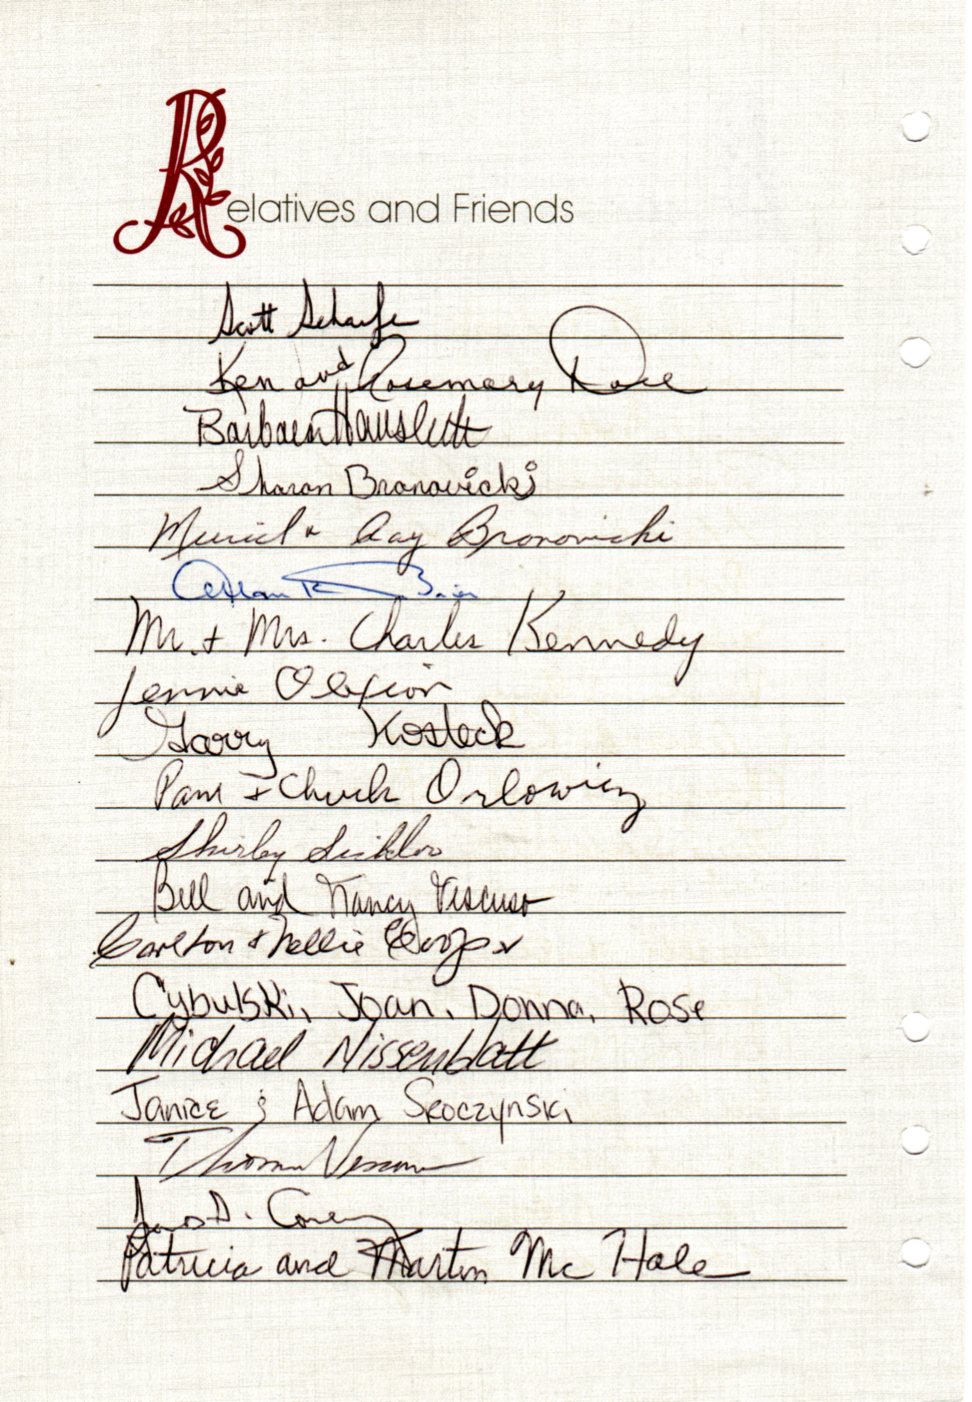 Relatives and Friends
Scott Schaefe
Ken and Rosemary
Barbara Hauslett
Sharon Bronovicki
Muriel & Ray Bronovicki
Mr. & Mrs. Charles Kennedy
Jennie Olexion
Garry Kosteck
Pam & Chuck Orlowicz
Shirley
Bill and Nancy Viscuso
Carlton & Nellie
Cybulski, Joan, Donna, Rose
Michael Nissenblatt
Janice & Adam Skoczynski
Thomas
D.
Patricia and Martin Mc Hale